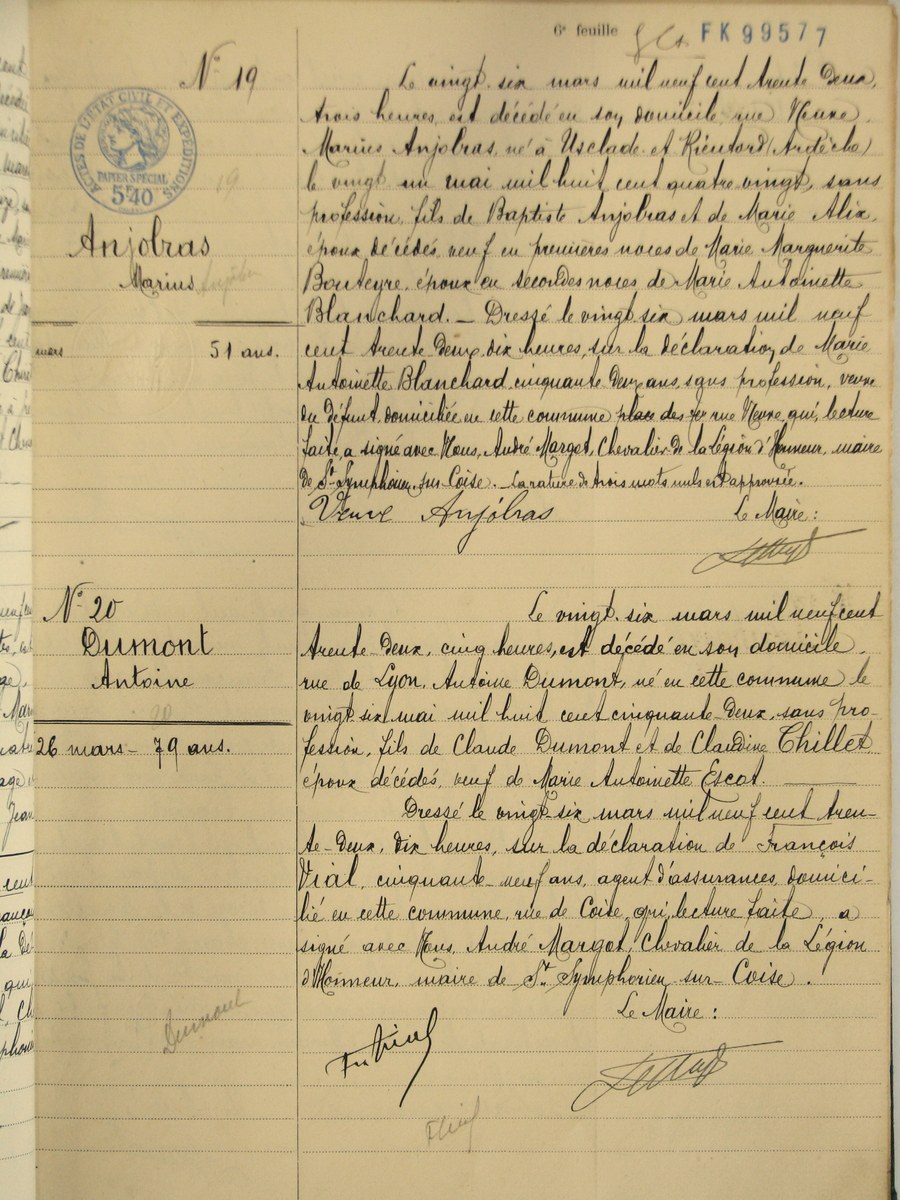 6e feuille
FK 99577
N° 19
ACTES DE L'ETAT CIVIL ET EXPEDITIONS
PAPIER SPECIAL
5F40
19
Anjolras
Marius
mars
51 ans.
Le vingt-six mars mil neuf cent trente-deux,
trois heures, est décédé en son domicile, rue Neuve,
Marius Anjolras, né à Usclade-et-Rieutord (Ardèche)
le vingt un mai mil huit cent quatre vingt, sans
profession, fils de Baptiste Anjolras et de Marie Alix,
époux décédés, veuf en premières noces de Marie Marguerite
Bouteyre, époux en secondes noces de Marie Antoinette
Blanchard. — Dressé le vingt six mars mil neuf
cent trente-deux, dix heures, sur la déclaration de Marie
Antoinette Blanchard, cinquante-deux ans, sans profession, veuve
du défunt, domiciliée en cette commune place des rue Neuve, qui, lecture
faite a signé avec Nous, André Margot, Chevalier de la Légion d'Honneur, maire
de St Symphorien-sur-Coise. — La rature de trois mots nuls est approuvée.
Veuve Anjolras
Le Maire :
N° 20
Dumont
Antoine
20
26 mars - 79 ans.
Le vingt-six mars mil neuf cent
trente-deux, cinq heures, est décédé en son domicile,
rue de Lyon, Antoine Dumont, né en cette commune le
vingt six mai mil huit cent cinquante-deux, sans pro-
fession, fils de Claude Dumont et de Claudine Chillet,
époux décédés, veuf de Marie Antoinette Escot.
Dressé le vingt-six mars mil neuf cent tren-
te-deux, dix heures, sur la déclaration de François
Vial, cinquante-neuf ans, agent d'assurances, domici-
lié en cette commune, rue de Coise, qui, lecture faite, a
signé avec Nous, André Margot, Chevalier de la Légion
d'Honneur, maire de St Symphorien-sur-Coise.
Le Maire :
Dumont